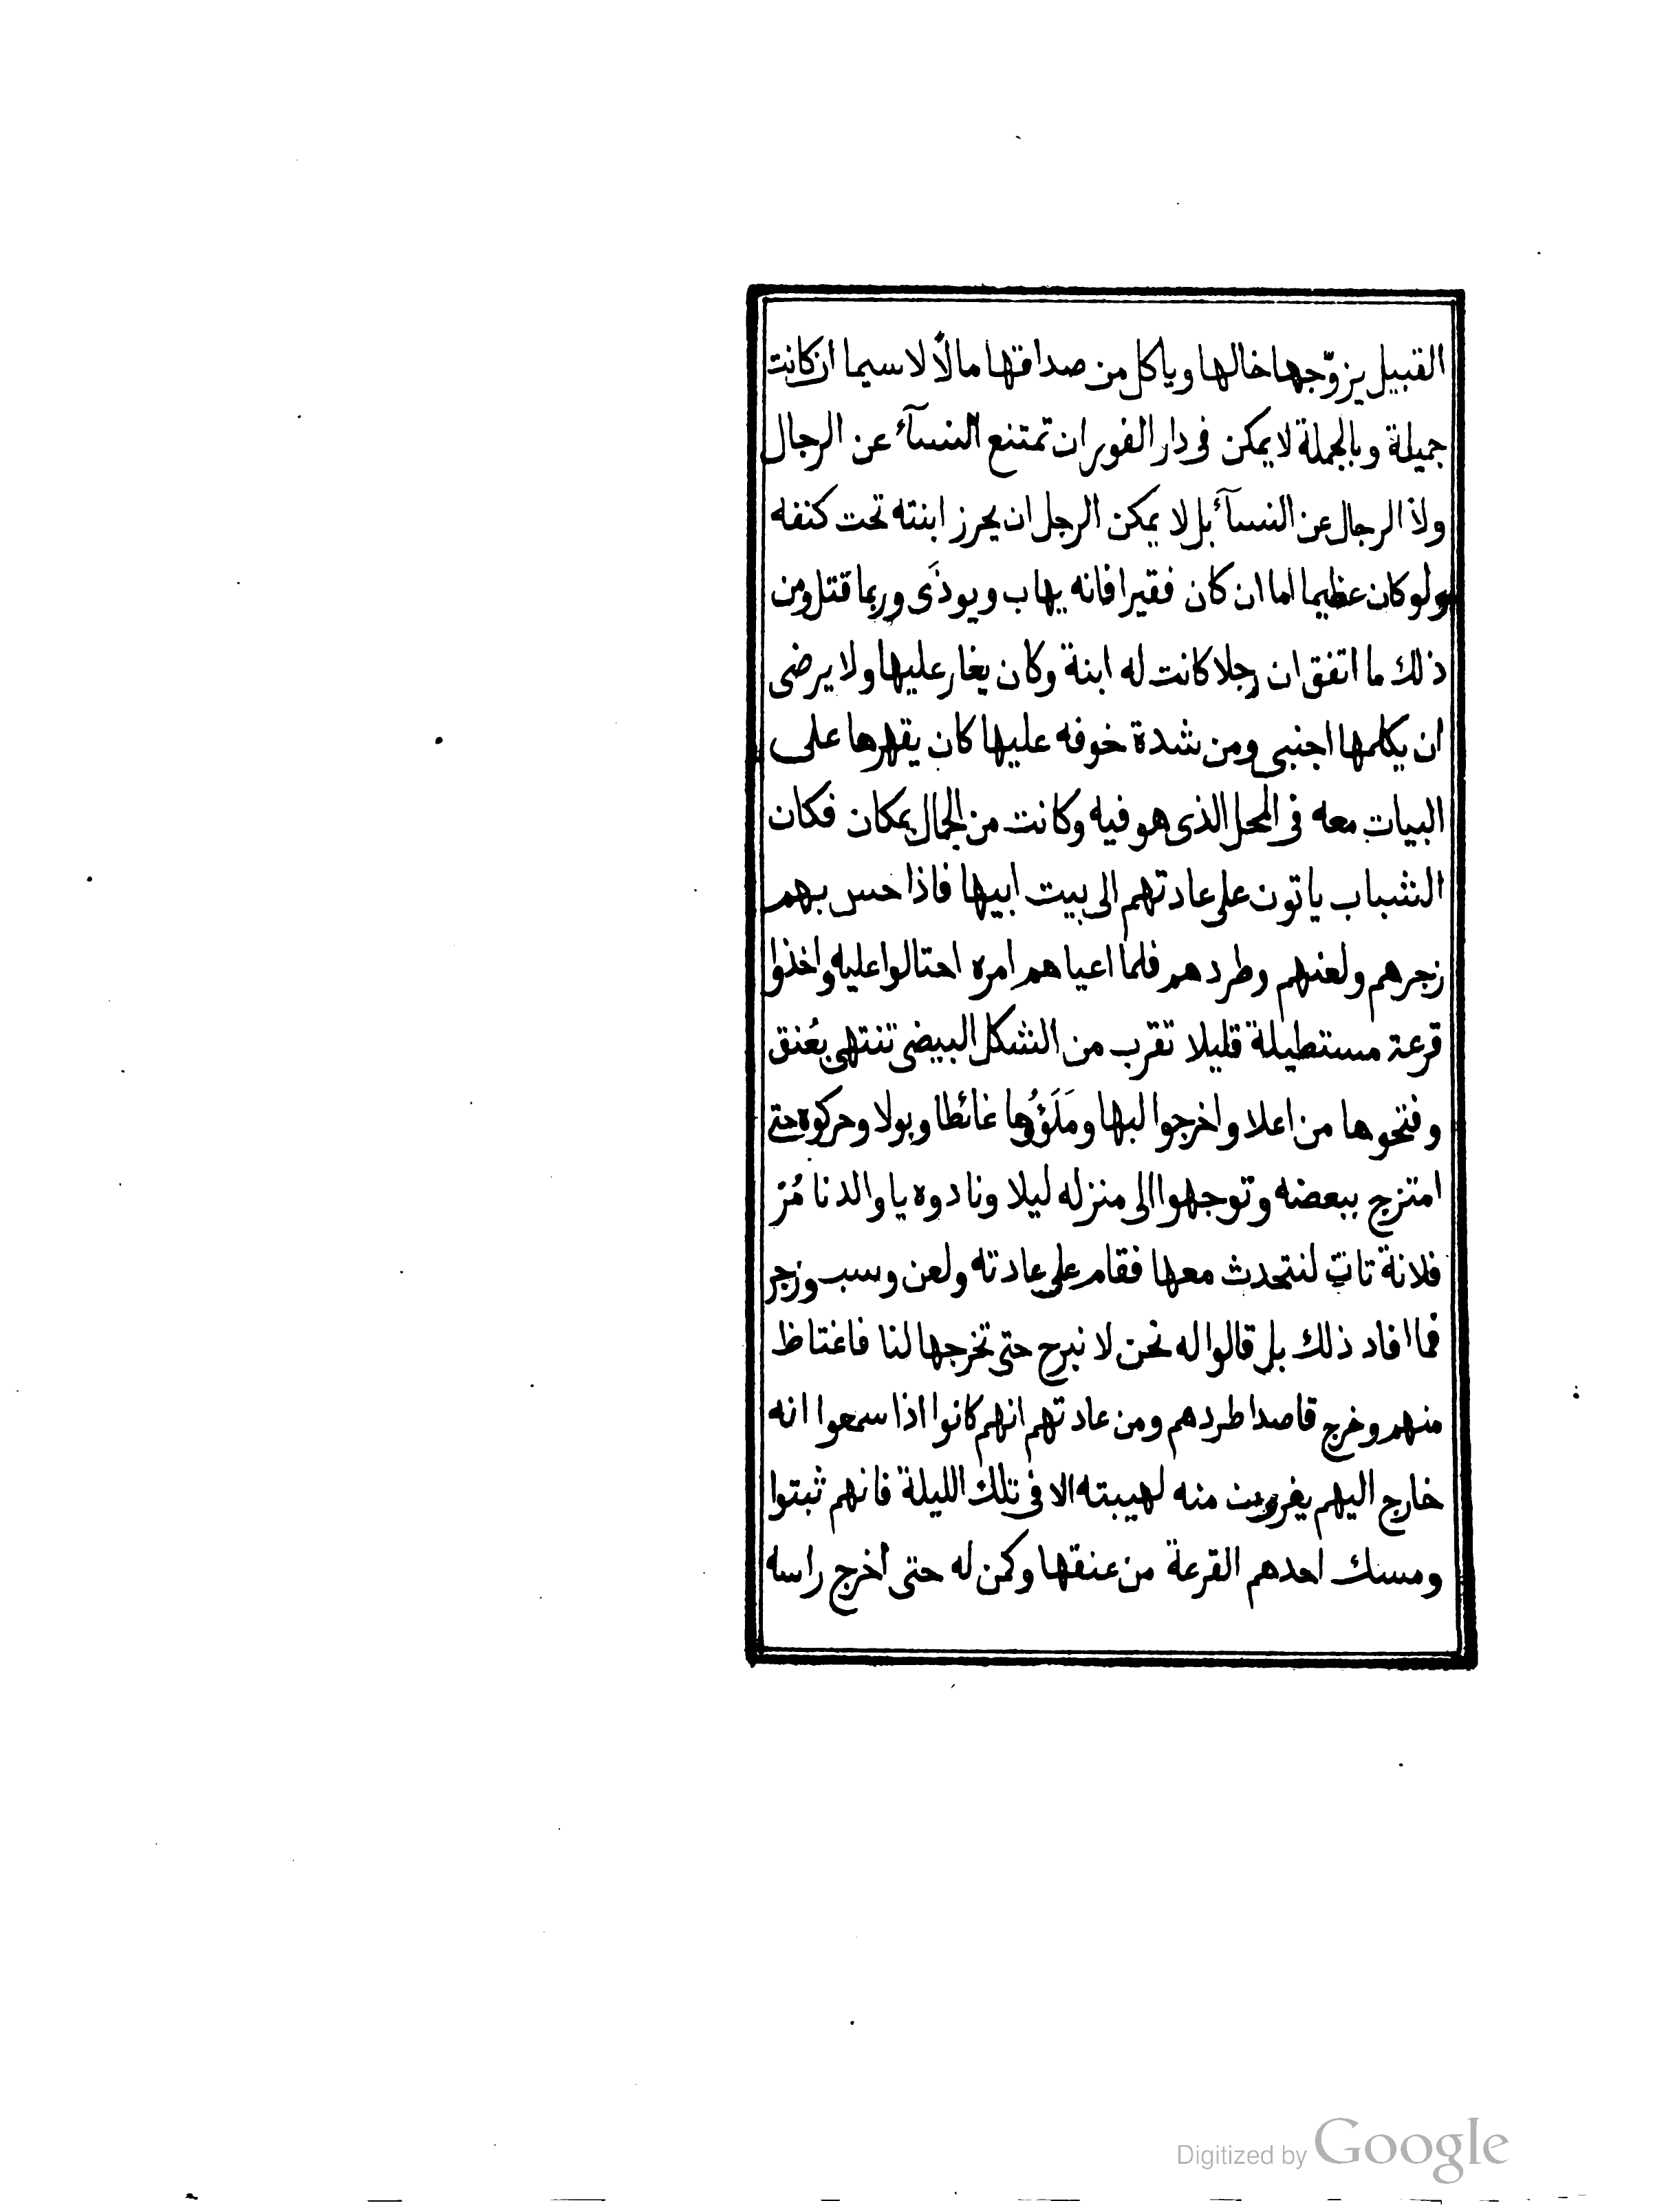 القبيل يزوّجها خالها وياكل من صداقها مالاً لاسيما ان كانت
جميلة وبالجملة لا يمكن فى دار الفور ان تمتنع النسآء عن الرجال
ولا الرجال عن النسآء بل لا يمكن الرجل ان يحرز ابنته تحت كنفه
ولو كان عظيما اما ان كان فقيرا فانه يهاب ويوذَى وربما قتل ومن
ذلك ما اتفق ان رجلا كانت له ابنة وكان يغار عليها ولا يرضى
ان يكلمها اجنبى ومن شدة خوفه عليها كان يقهرها على
البيات معه فى المحل الذى هو فيه وكانت من الجمال بمكان فكان
الشباب ياتون على عادتهم الى بيت ابيها فاذا حس بهم
زجرهم ولعنهم وطردهم فلما اعياهم امره احتالوا عليه واخذوا
قرعة مستطيلة قليلا تقرب من الشكل البيضى تنتهى بعُنق
وفتحوها من اعلا واخرجوا لبها ومَلَؤُها غائطا وبولا وحركوه حتى
امتزج ببعضه وتوجهوا الى منزله ليلا ونادوه يا والدنا مُرْ
فلانة تاتِ لنتحدث معها فقام على عادته ولعن وسب وزجر
فما افاد ذلك بل قالوا له نحن لا نبرح حتى تخرجها لنا فاغتاظ
منهم وخرج قاصدا طردهم ومن عادتهم انهم كانوا اذا سمعوا انه
خارج اليهم يفرون منه لهيبته الا فى تلك الليلة فانهم ثبتوا
ومسك احدهم القرعة من عنقها وكمن له حتى اخرج راسه
Digitized by Google